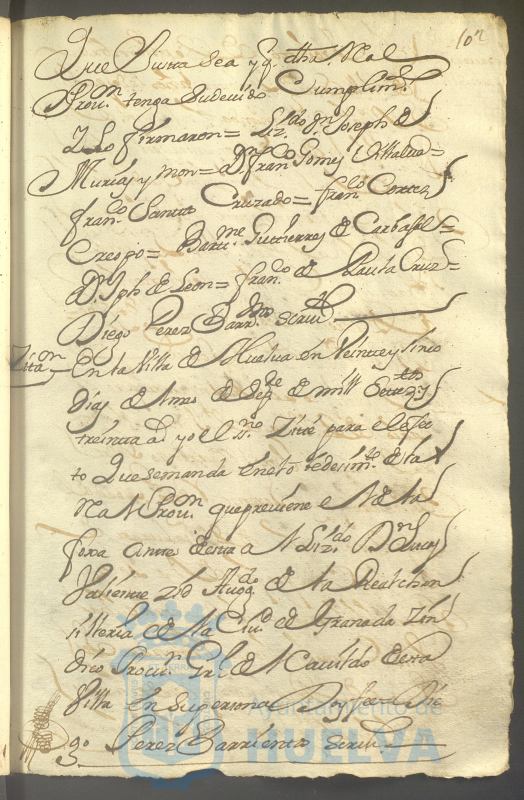 102
Que Sirva sea y q.e dha. Real
Prov.on tenga su devido Cumplim.to
Y Lo firmaron= Liz.do D.n Joseph de
Murias y mon= D.n Fran.co Gomes Villalva=
Fran.co Santos Cruzado= fran.co Cortes
Crespo= Bart.me Gutierres de Carbajal=
D.n Jph de Leon= fran.co de Cruz=
Diego Perez Barr.tos scriv.o
Zita.on En la Villa de Huelva en Veinte y Sinco
Dias de mes de de mill Setez.tos y
treinta a.s yo el s.no Zité para el efec
to que se manda en esta
Real Prov.on que previene el
foxa antes de esta a el Liz.do D.n
Valiente Zid Avog.do de la Real chan
silleria de la Ciu.d de Granada Zin
dico Procu.or Gr.l de el Cavildo de esta
Villa en su persona Doy fee= Die
go Perez Barrientos scriv.o
Ayuntamiento de
HUELVA